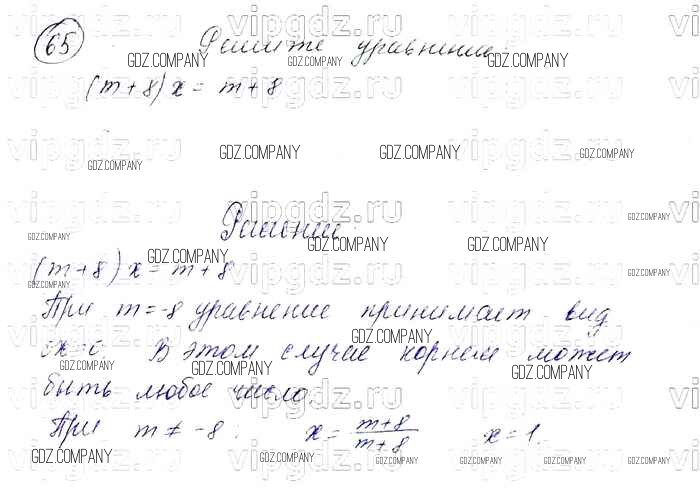 65
Решите уравнение
(m+8)x = m+8
Решение:
(m+8)x = m+8
При m = -8 уравнение принимает вид
0x=0. В этом случае корнем может
быть любое число.
При m ≠ -8. x = \frac{m+8}{m+8} x = 1.
vipgdz.ru
GDZ.COMPANY